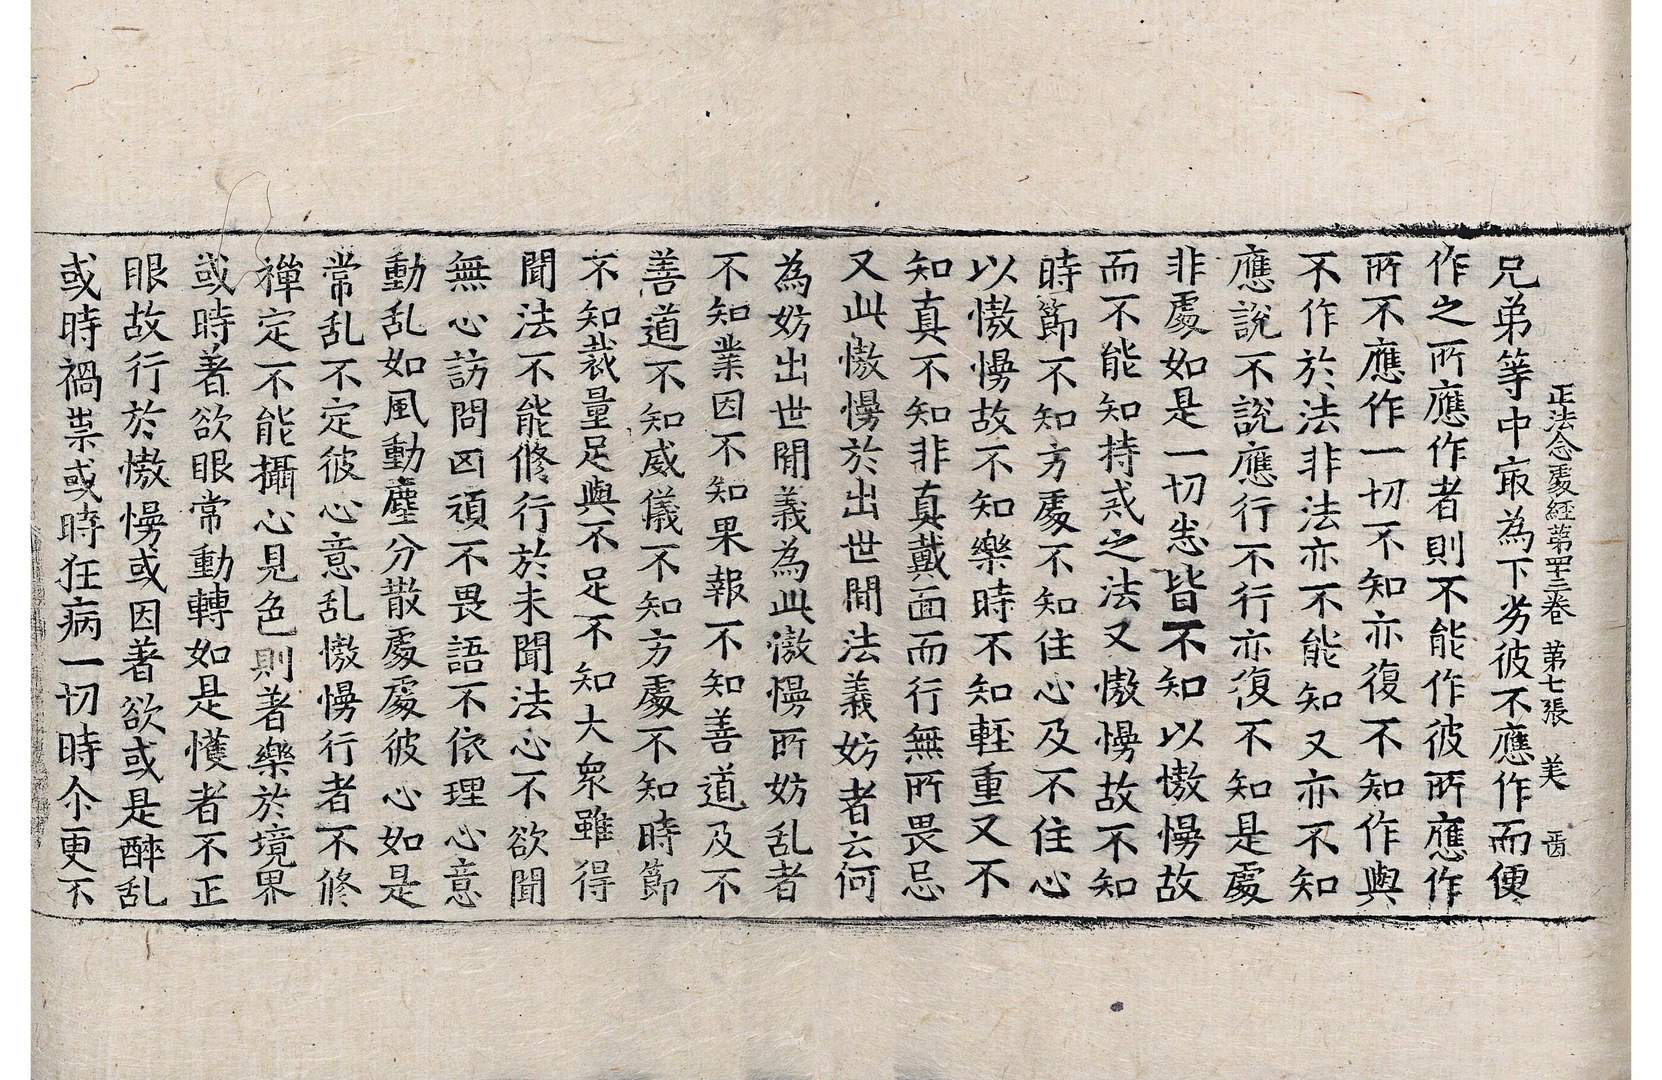 正法念處経第四十三卷 第七張 美
兄弟等中冣為下劣彼不應作而便
作之所應作者則不能作彼所應作
所不應作一切不知亦復不知作與
不作於法非法亦不能知又亦不知
應說不說應行不行亦復不知是處
非處如是一切悉皆不知以憿慢故
而不能知持戒之法又憿慢故不知
時節不知方處不知住心及不住心
以憿慢故不知樂時不知輕重又不
知真不知非真戴面而行無所畏忌
又此憿慢於出世間法義妨者云何
為妨出世間義為此憿慢所妨乱者
不知業因不知果報不知善道及不
善道不知威儀不知方處不知時節
不知裁量足與不足不知大衆雖得
聞法不能俢行於未聞法心不欲聞
無心訪問凶頑不畏語不依理心意
動乱如風動塵分散處處彼心如是
常乱不定彼心意乱憿慢行者不俢
禪定不能攝心見色則著樂於境界
或時著欲眼常動轉如是慢者不正
眼故行於憿慢或因著欲或是醉乱
或時禍祟或時狂病一切時尒更不